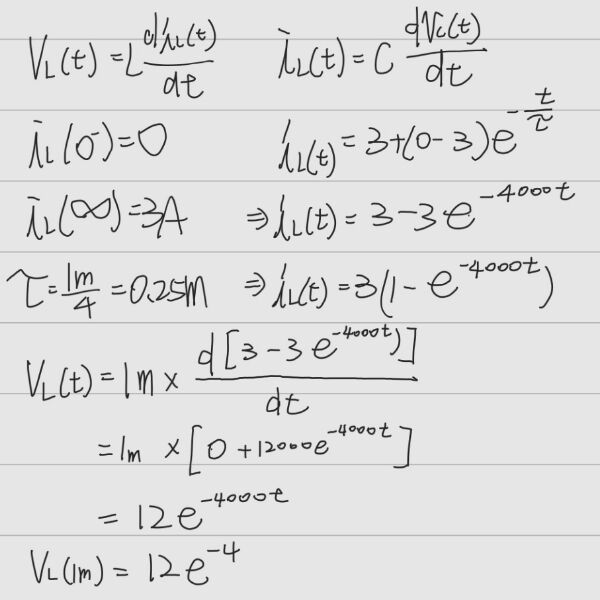 V_L(t) = L di_L(t)/dt    i_L(t) = C dV_C(t)/dt
i_L(0⁻) = 0    i_L(t) = 3+(0-3)e^(-t/τ)
i_L(∞) = 3A    ⇒ i_L(t) = 3-3e^(-4000t)
τ = 1m/4 = 0.25m    ⇒ i_L(t) = 3(1-e^(-4000t))
V_L(t) = 1m × d[3-3e^(-4000t))]/dt
= 1m × [0+12000e^(-4000t)]
= 12e^(-4000t)
V_L(1m) = 12e^(-4)